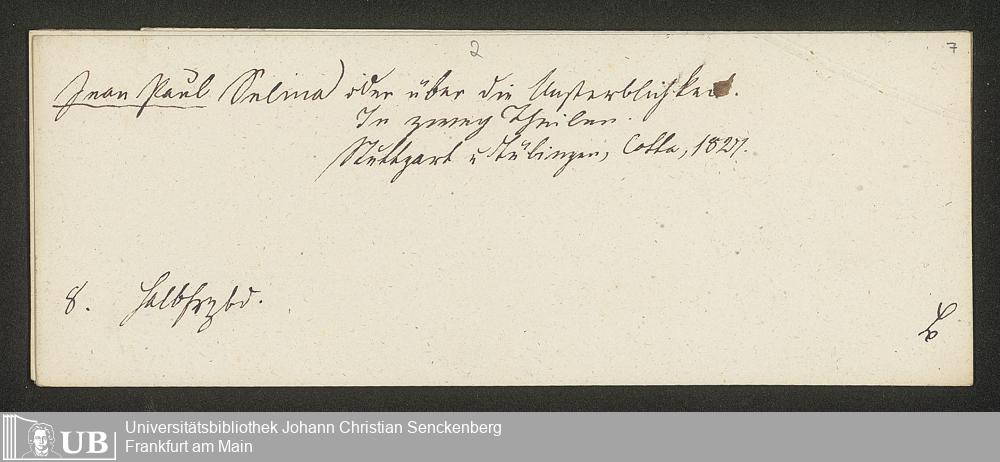 2 7
Jean Paul Selina) oder über die Unsterblichkeit.
In zwey Theilen.
Stuttgart u Tübingen, Cotta, 1827.
8. Halbfrzbd.
UB Universitätsbibliothek Johann Christian Senckenberg
Frankfurt am Main